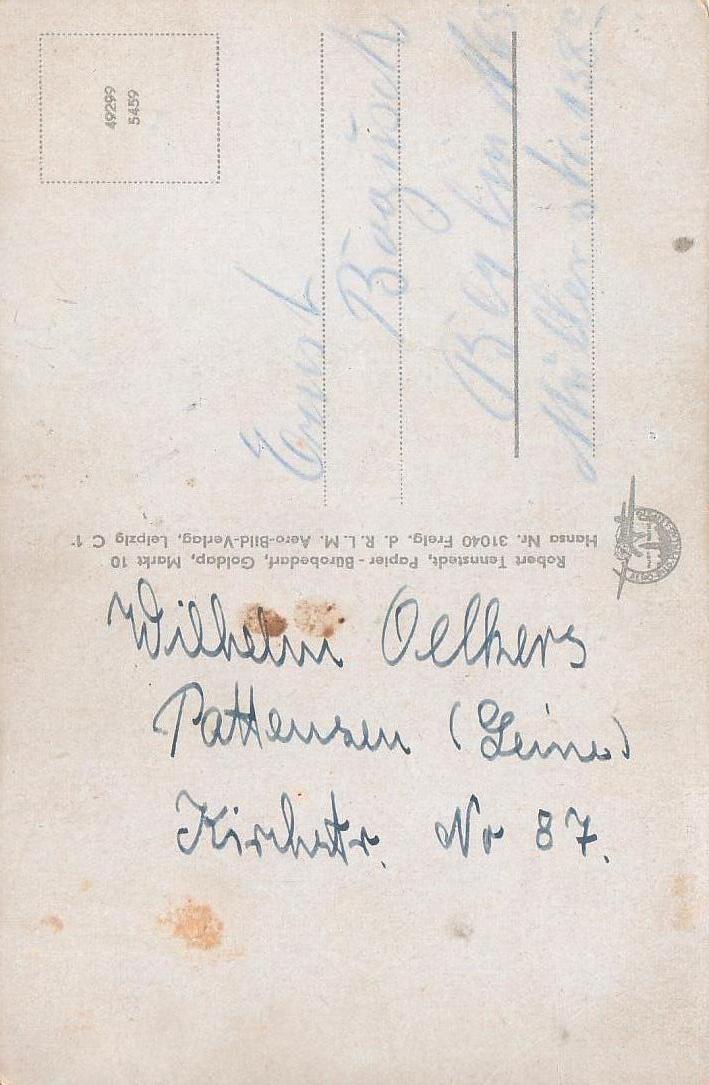 49299
5459
Ernst
Berlin N65
Müllerstr. 138c
Robert Tennstedt, Papier - Bürobedarf, Goldap, Markt 10
Hansa Nr. 31040 Freig. d. R. L. M. Aero-Bild-Verlag, Leipzig C 1
Wilhelm Oelkers
Pattensen (Leine)
Kirchstr. No 87.